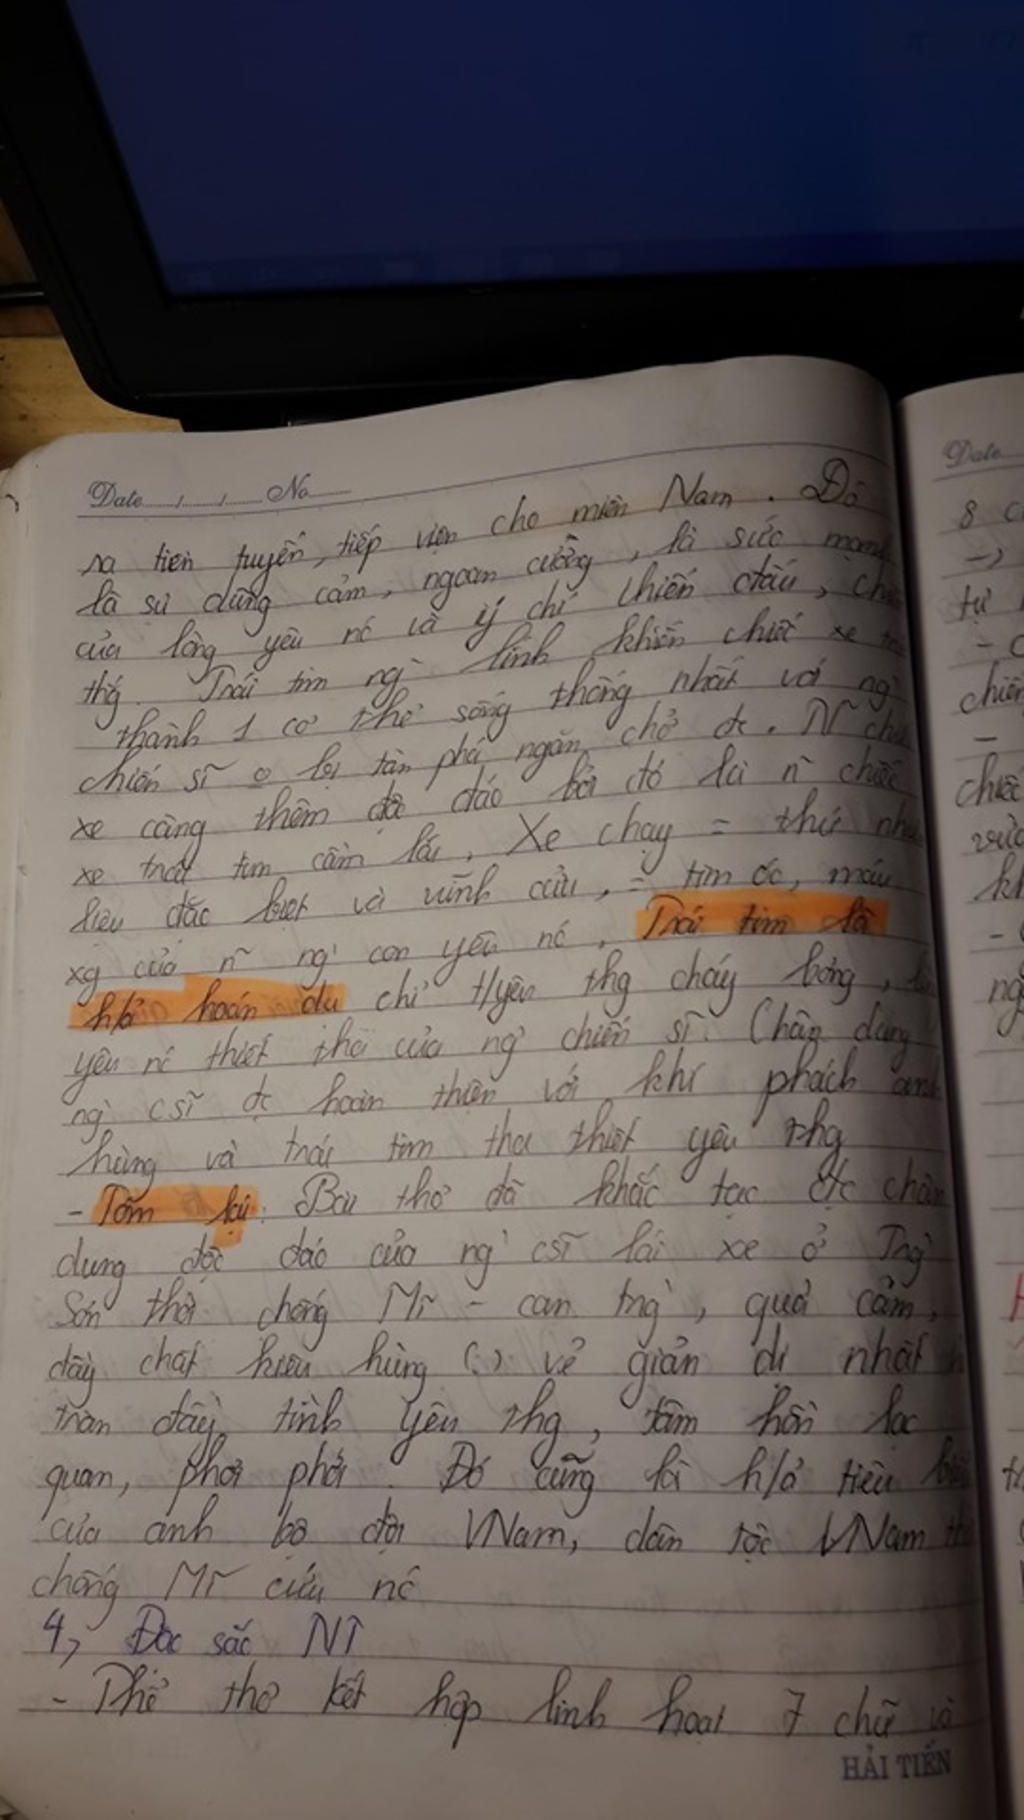 Date No
ra tiền tuyến, tiếp viện cho miền Nam. Đó
là sự dũng cảm, ngoan cường, là sức mạnh
của lòng yêu nc và ý chí chiến đấu,
thg. Trái tim ng` lính khiến chiếc xe
thành 1 cơ thể sống thống nhất với ng`
chiến sĩ o lại tàn phá ngăn chở đc. N~
xe càng thêm độc đáo bởi đó là n~ chiếc
xe trái tim cầm lái. Xe chạy = thứ
liệu đặc biệt và vĩnh cửu, = tim óc, máu
xg của n~ ng` con yêu nc. Trái tim là
h/ả hoán dụ chỉ t/yêu thg cháy bỏng,
yêu nc thiết tha của ng` chiến sĩ. Chân dung
ng` csĩ đc hoàn thiện với khí phách anh
hùng và trái tim tha thiết yêu thg
- Tóm lại: Bài thơ đã khắc tạc đc chân
dung độc đáo của ng` csĩ lái xe ở Trg`
Sơn thời chống Mĩ - can trg`, quả cảm,
đầy chất kiêu hùng (.) vẻ giản dị nhất
tràn đầy tình yêu thg, tâm hồn lạc
quan, phơi phới. Đó cũng là h/ả tiêu
của anh bộ đội VNam, dân tộc VNam
chống Mĩ cứu nc
4, Đặc sắc NT
- Thể thơ kết hợp linh hoạt 7 chữ và
HẢI TIẾN
Date
8
->
tự
-
chiến
-
chiếc
-